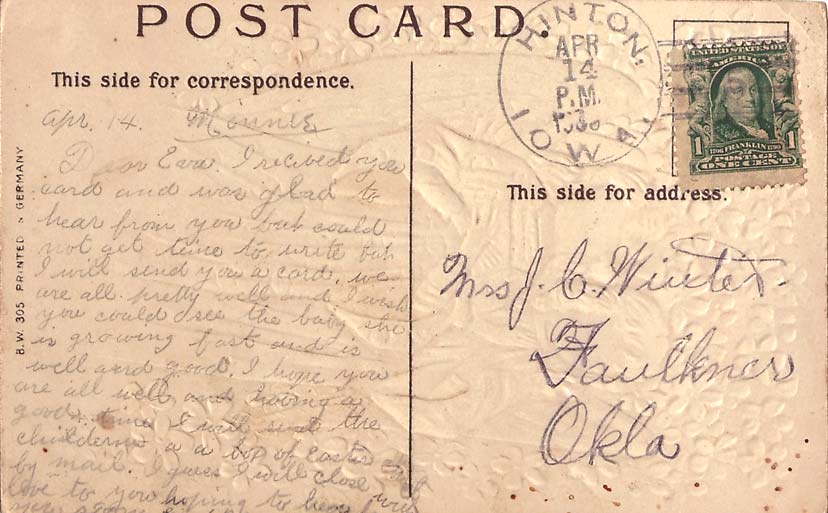 POST CARD.
This side for correspondence.
HINTON,
APR
14
P.M.
IOWA.
UNITED STATES OF
AMERICA
1 1706 FRANKLIN 1790 1
POSTAGE
ONE CENT
This side for address.
B.W. 305 PRINTED IN GERMANY
Apr. 14. Minnie
Dear Eva. I recived you
card and was glad to
hear from you but could
not get time to write but
I will send you a card. we
are all pretty well and I wish
you could see the baby she
is growing fast and is
well and good. I hope you
are all well and having a
good time I will send the
childern a box of Easter
by mail. I guess I will close
love to you hoping to hear
you soon
Mrs J. C. Winter.
Faulkner
Okla